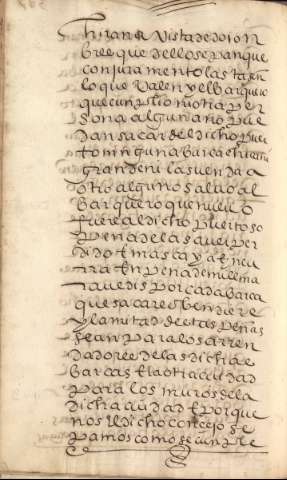 vista de dos on
bres que dellos sepan que
con juramento las tasen
lo que valen y el barquero
que cunplio no tia per
sona alguna no pue
dan sacar del dicho puer
to ninguna barca chica ni
grande ni la suenda a
otro alguno saluo al
barquero que nueuo
fuere al dicho puerto so
pena de las auer per
didot mas caya et ncu
rra en pena de mill ma
rauedis por cada barca
que sacare o bendiere
y la mitad destas penas
sean para los arren
dadores de las dichas
barcas t la otra ciudad
para los muros de la
dicha ciudad t porque
nos el dicho concejo se
pamos como se cunple